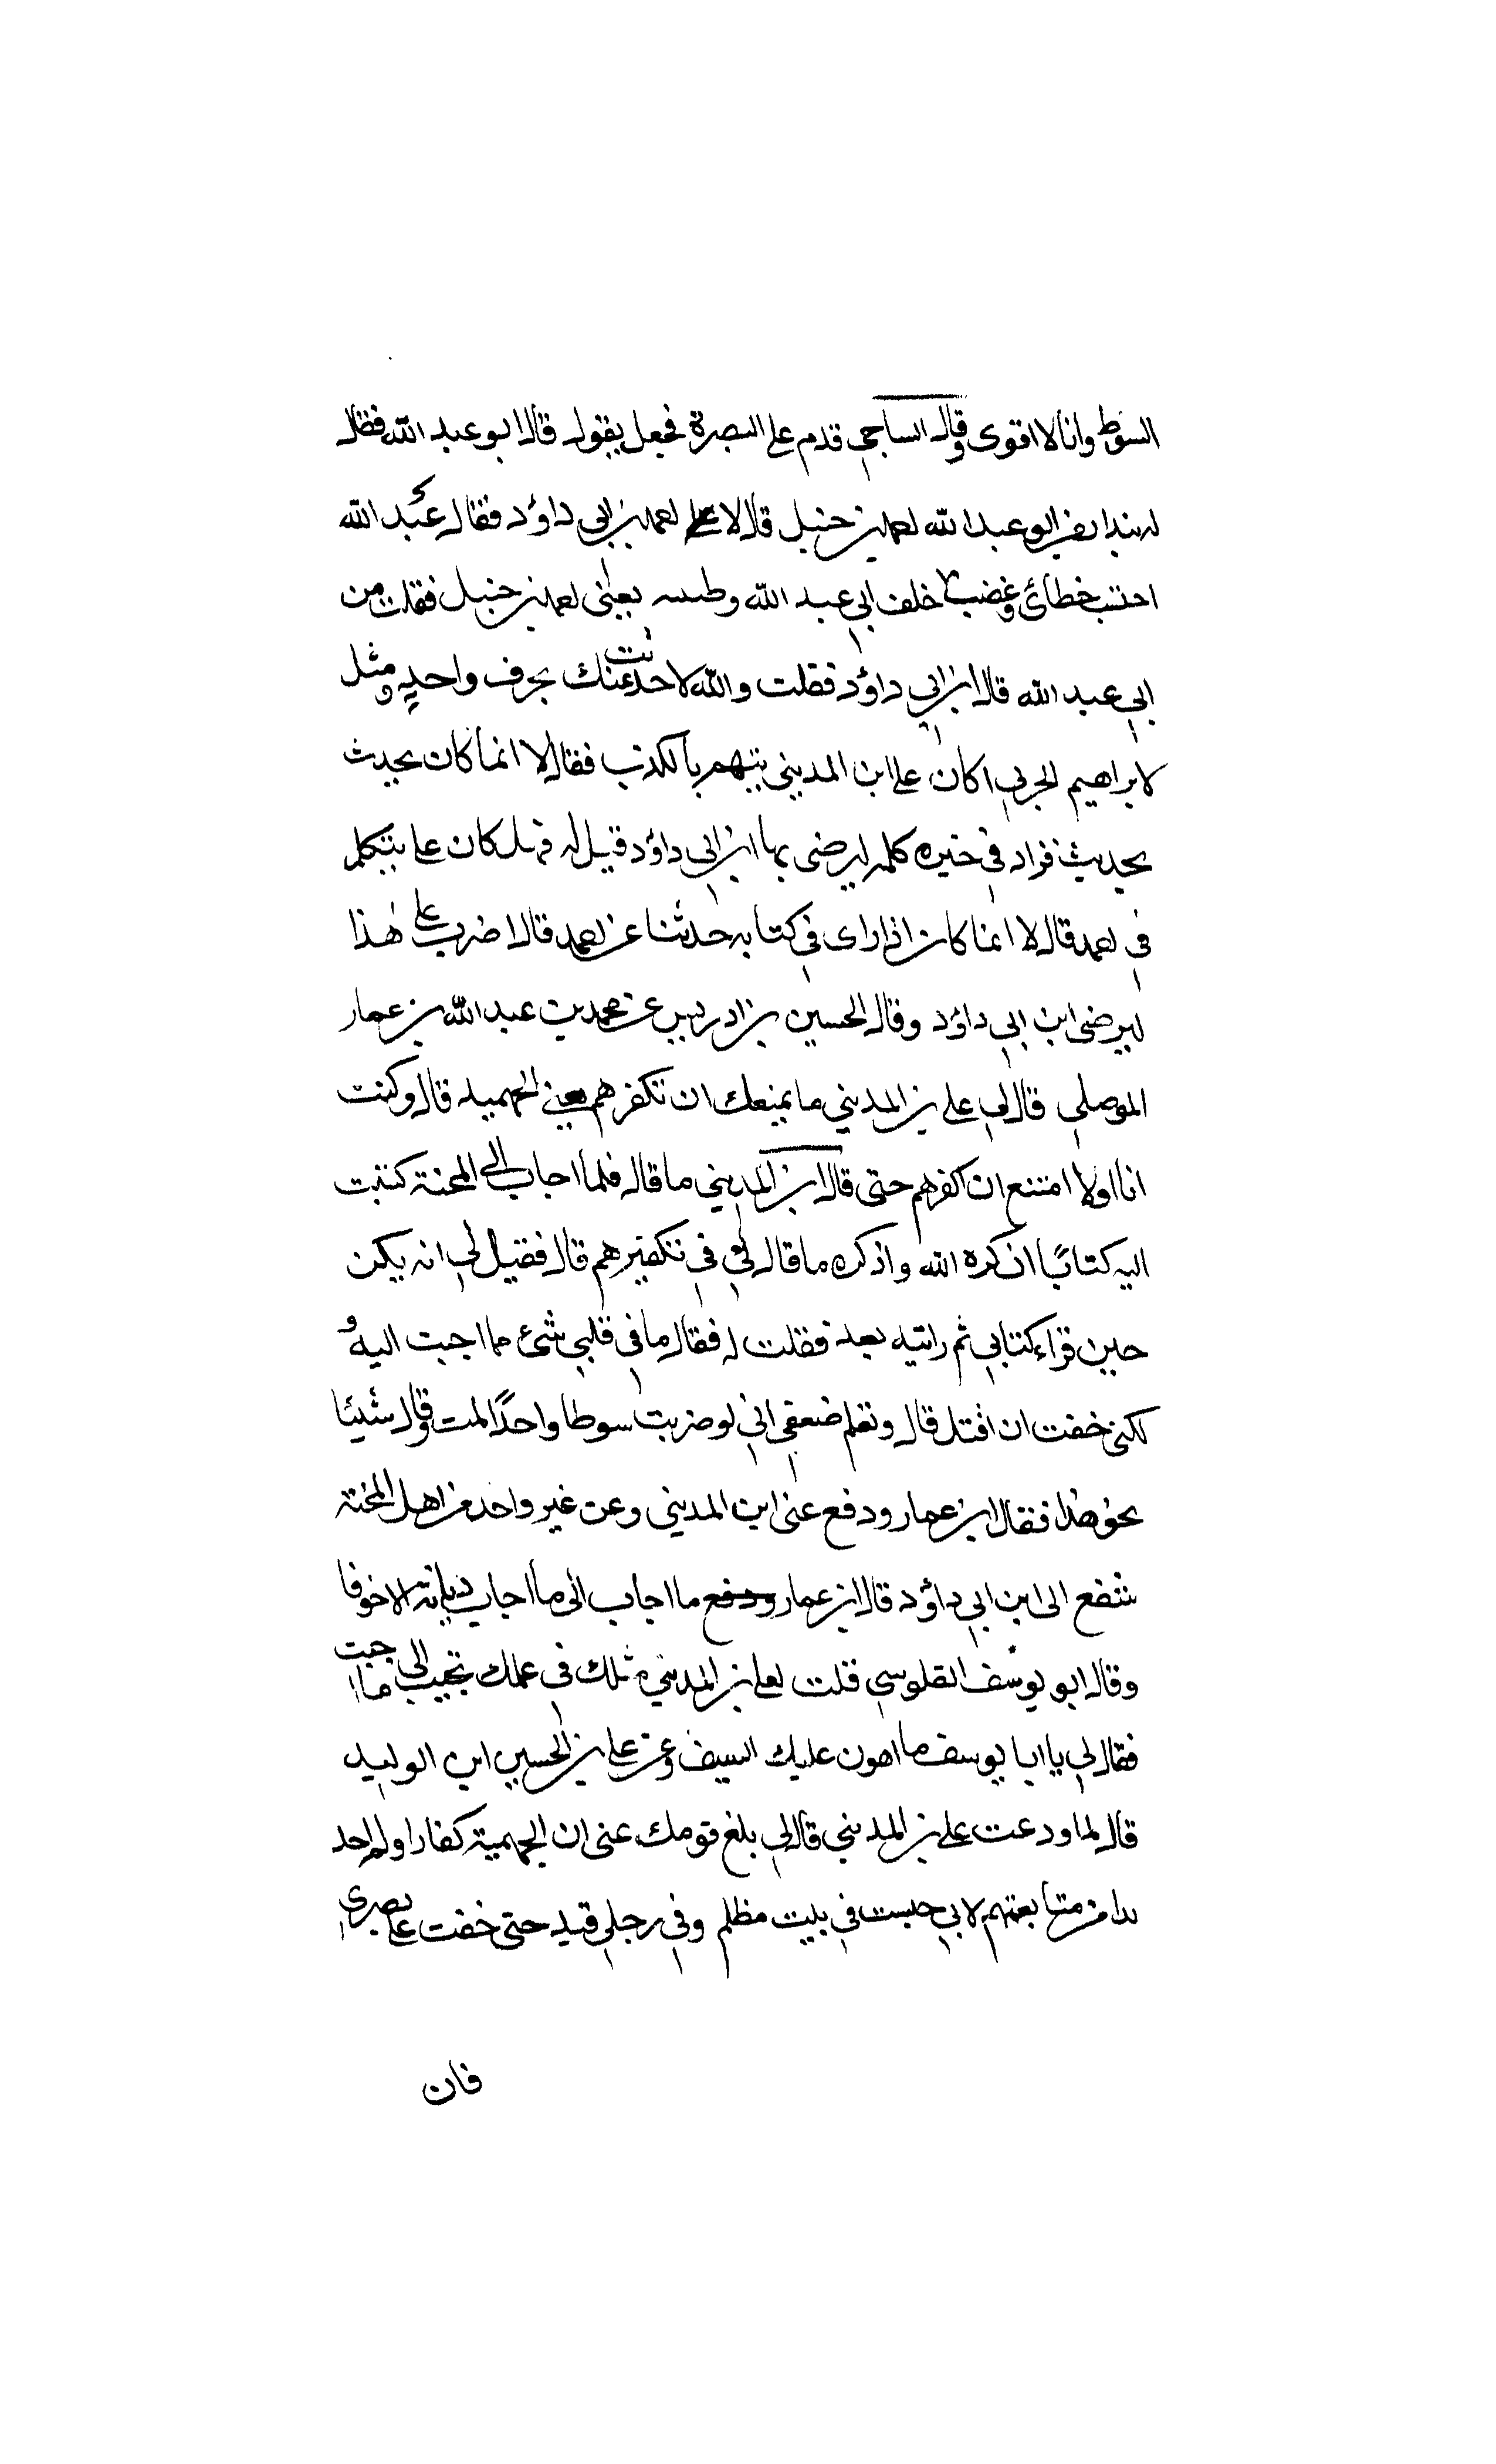 السوط وانا لا اقوى وقال الساجي قدم علي البصرة فجعل يقول قال ابو عبد الله فقال
له بندار من ابو عبد الله احمد بن حنبل قال لا احمد بن ابي داؤد فقال عبد الله
احتسب خطائ وغضب خلف ابي عبد الله يعني احمد بن حنبل فقلت من
ابي عبد الله قال ابن ابي داؤد فقلت والله لا حدثت عنك بحرف واحد وقيل
لابراهيم الحربي اكان علي ابن المديني يتهم بالكذب فقال لا انما كان يحدث
بحديث فزاد في خبره كلمه ليرضى بها ابن ابي داؤد قيل له فهل كان علي يتكلم
في احمد قال لا انما كان اذا راى في كتابه حدثنا عن احمد قال اضرب على هذا
ليرضى ابن ابي داؤد وقال الحسين بن ادريس عن محمد بن عبد الله بن عمار
الموصلي قال لي علي بن المديني ما يمنعك ان تكفرهم يعني الجهميه قال وكنت
انا اولا امتنع ان اكفرهم حتى قال ابن المديني ما قال فلما اجاب الى المحنة كتبت
اليه كتابًا اذكره الله واذكره ما قال لي في تكفيرهم قال فقيل لي انه يكن
حين قراء كتابي ثم رايته بعد فقلت له فقال ما في قلبي شئ مما اجبت اليه و
لكني خفت ان اقتل قال وتعلم ضعفي اني لو ضربت سوطا واحدًا لمت وقال شيئا
نحو هذا فقال ابن عمار ودفع عنى ابن المديني وعن غير واحد من اهل المحنة
شفع الى ابن ابي داؤد قال ابن عمار ودفع ما اجاب الى ما اجاب ديانة الا خوفا
وقال ابو يوسف القلوسي قلت لعلي بن المديني مثلك في علمك تجيب الى ما اجبت
فقال لي يا ابا يوسف ما اهون عليك السيف وعن علي بن الحسين ابن الوليد
قال لما ودعت علي بن المديني قال لي بلغ قومك عنى ان الجهمية كفار اولم اجد
بدا من متابعتهم لاني حبست في بيت مظلم وفي رجلي قيد حتى خفت على بصري
فان